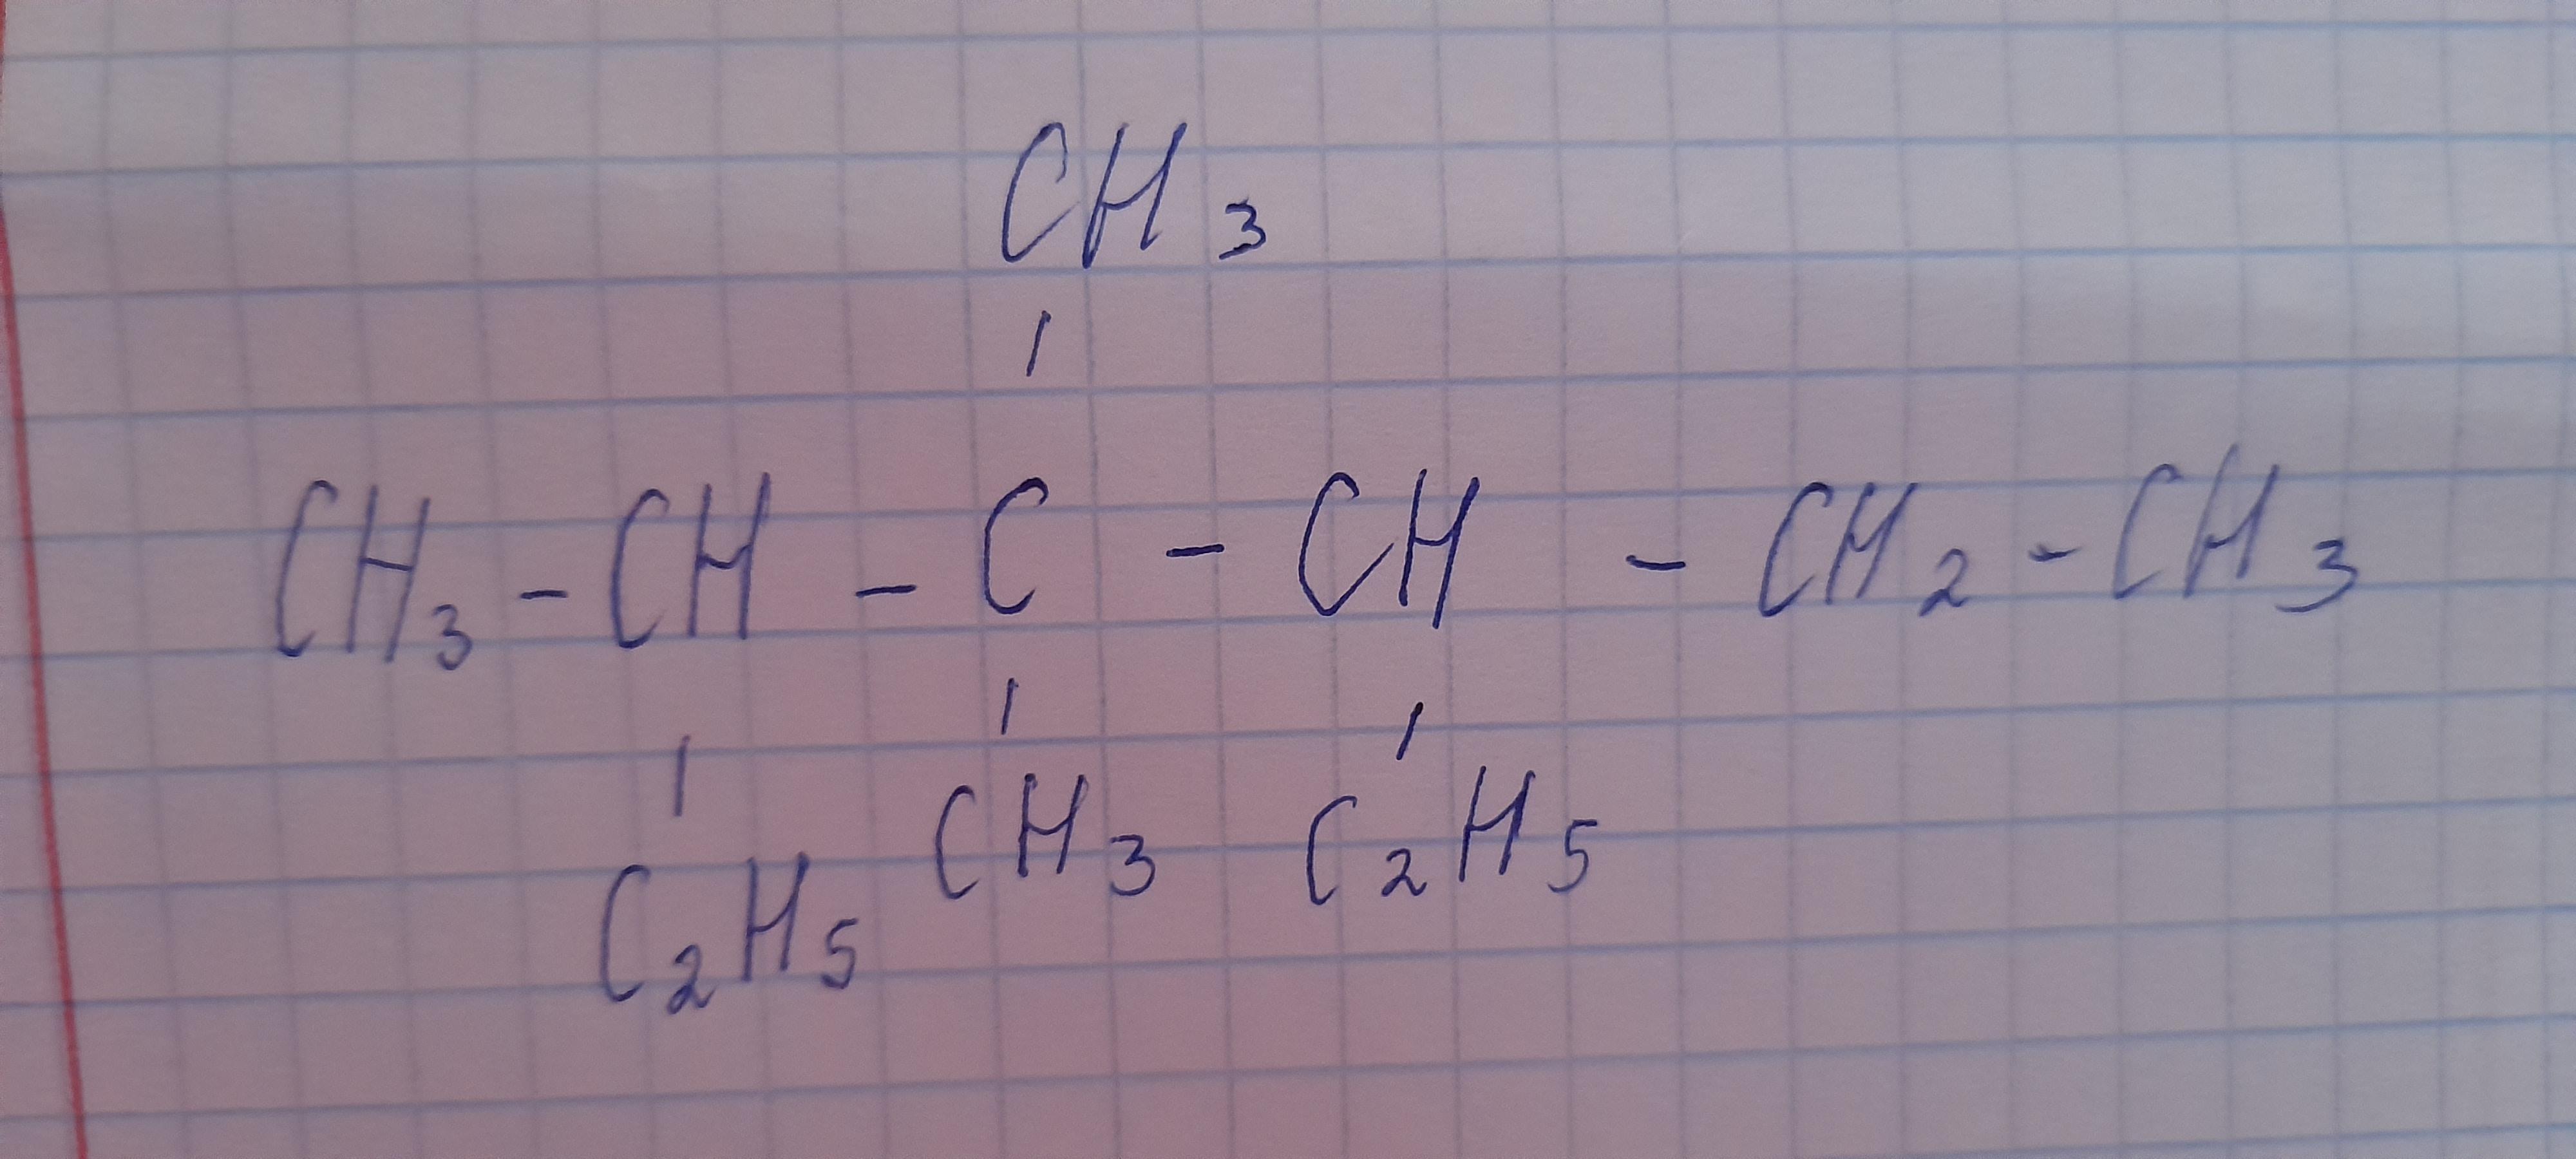 CH3
CH3 - CH - C - CH - CH2 - CH3
C2H5 CH3 C2H5